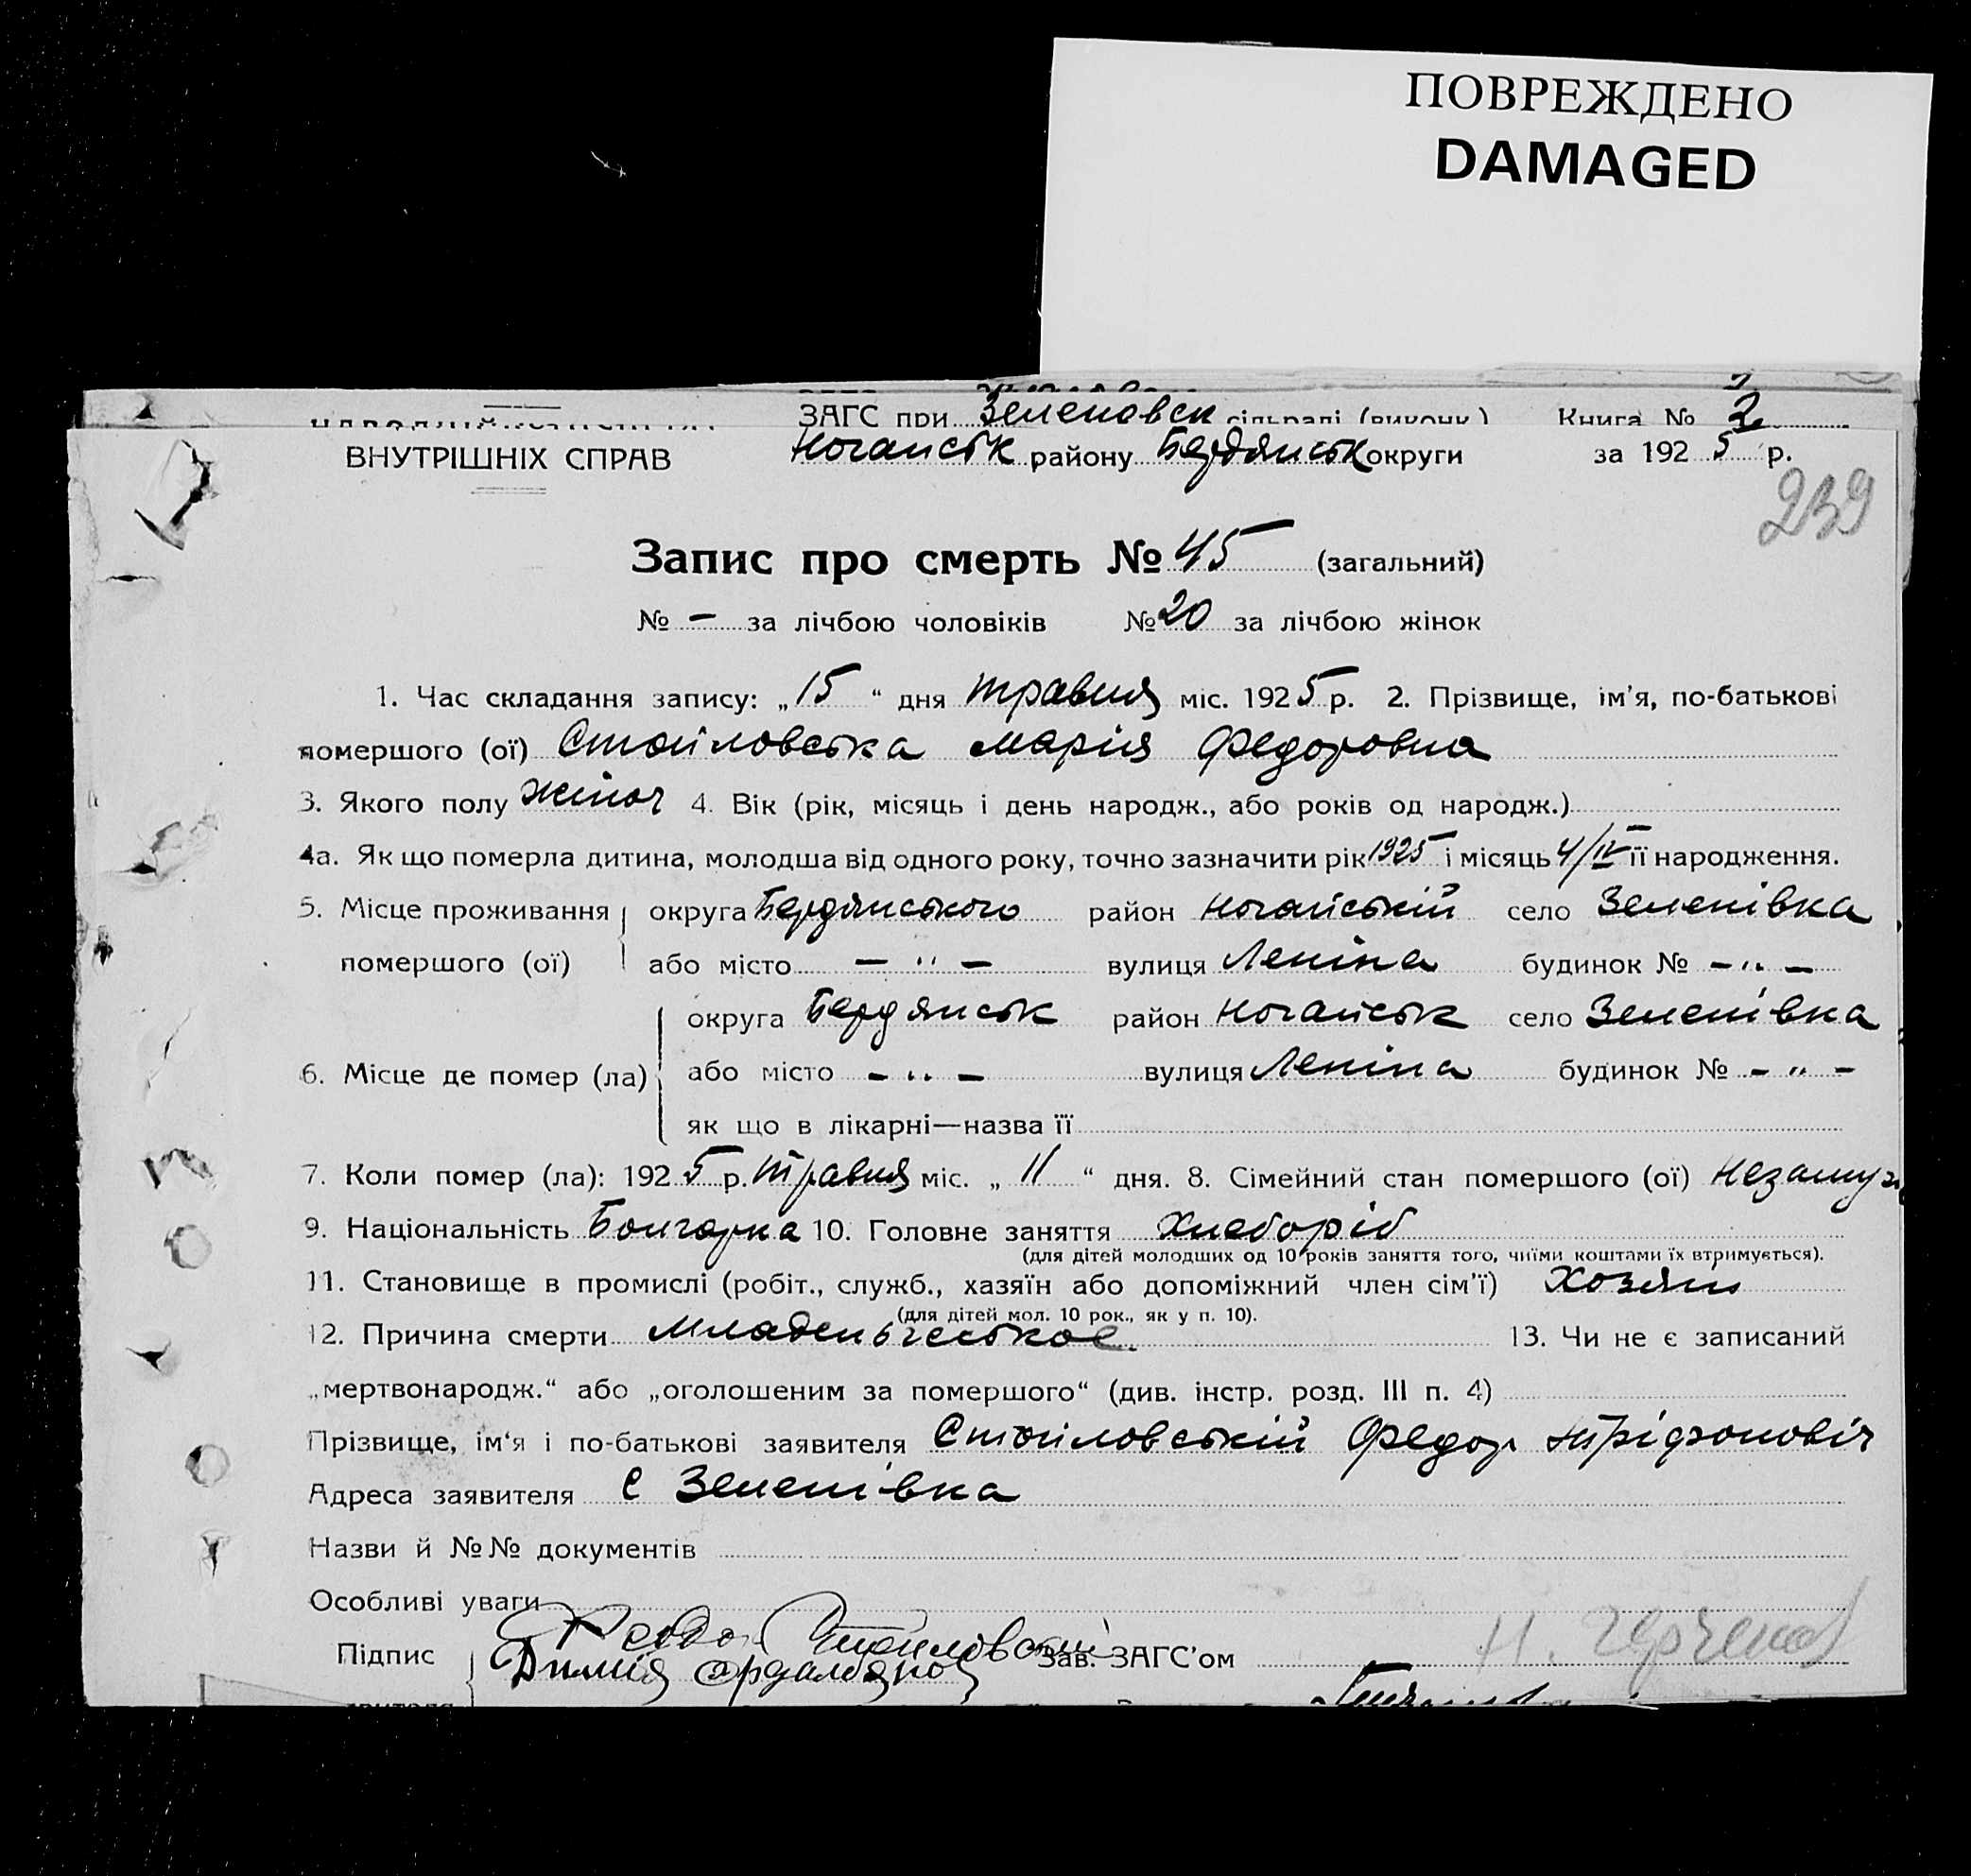 ПОВРЕЖДЕНО
DAMAGED
ЗАГС при Зеленовск сільраді (викон.) Книга № 2
ВНУТРІШНІХ СПРАВ Ногайськ району Бердянськ округи за 192 5 р.
239
Запис про смерть № 45 (загальний)
№ – за лічбою чоловіків № 20 за лічбою жінок
1. Час складання запису: „ 15 “ дня травня міс. 192 5 р. 2. Прізвище, ім'я, по-батькові
помершого (ої) Стойловська Марія Федоровна
3. Якого полу жіноч 4. Вік (рік, місяць і день народж., або років од народж.)
4а. Як що померла дитина, молодша від одного року, точно зазначити рік 1925 і місяць 4/IV її народження.
5. Місце проживання округа Бердянського район Ногайській село Зеленівка
помершого (ої) або місто – " – вулиця Леніна будинок № – " –
округа Бердянськ район Ногайськ село Зеленівка
6. Місце де помер (ла) або місто – " – вулиця Леніна будинок № – " –
як що в лікарні—назва її
7. Коли помер (ла): 192 5 р. травня міс. „ 11 “ дня. 8. Сімейний стан помершого (ої) незамуж
9. Національність Болгарка 10. Головне заняття Хлеборіб
(для дітей молодших од 10 років заняття того, чиїми коштами їх втримується).
11. Становище в промислі (робіт., служб., хазяїн або допоміжний член сім'ї) Хозяін
(для дітей мол. 10 рок., як у п. 10).
12. Причина смерти Младеньческое 13. Чи не є записаний
„мертвонародж.“ або „оголошеним за помершого“ (див. інстр. розд. III п. 4)
Прізвище, ім'я і по-батькові заявителя Стойловський Федор Тріфонович
Адреса заявителя С Зеленівка
Назви й №№ документів
Особливі уваги
Підпис Федор Стойловскі Зав. ЗАГС'ом